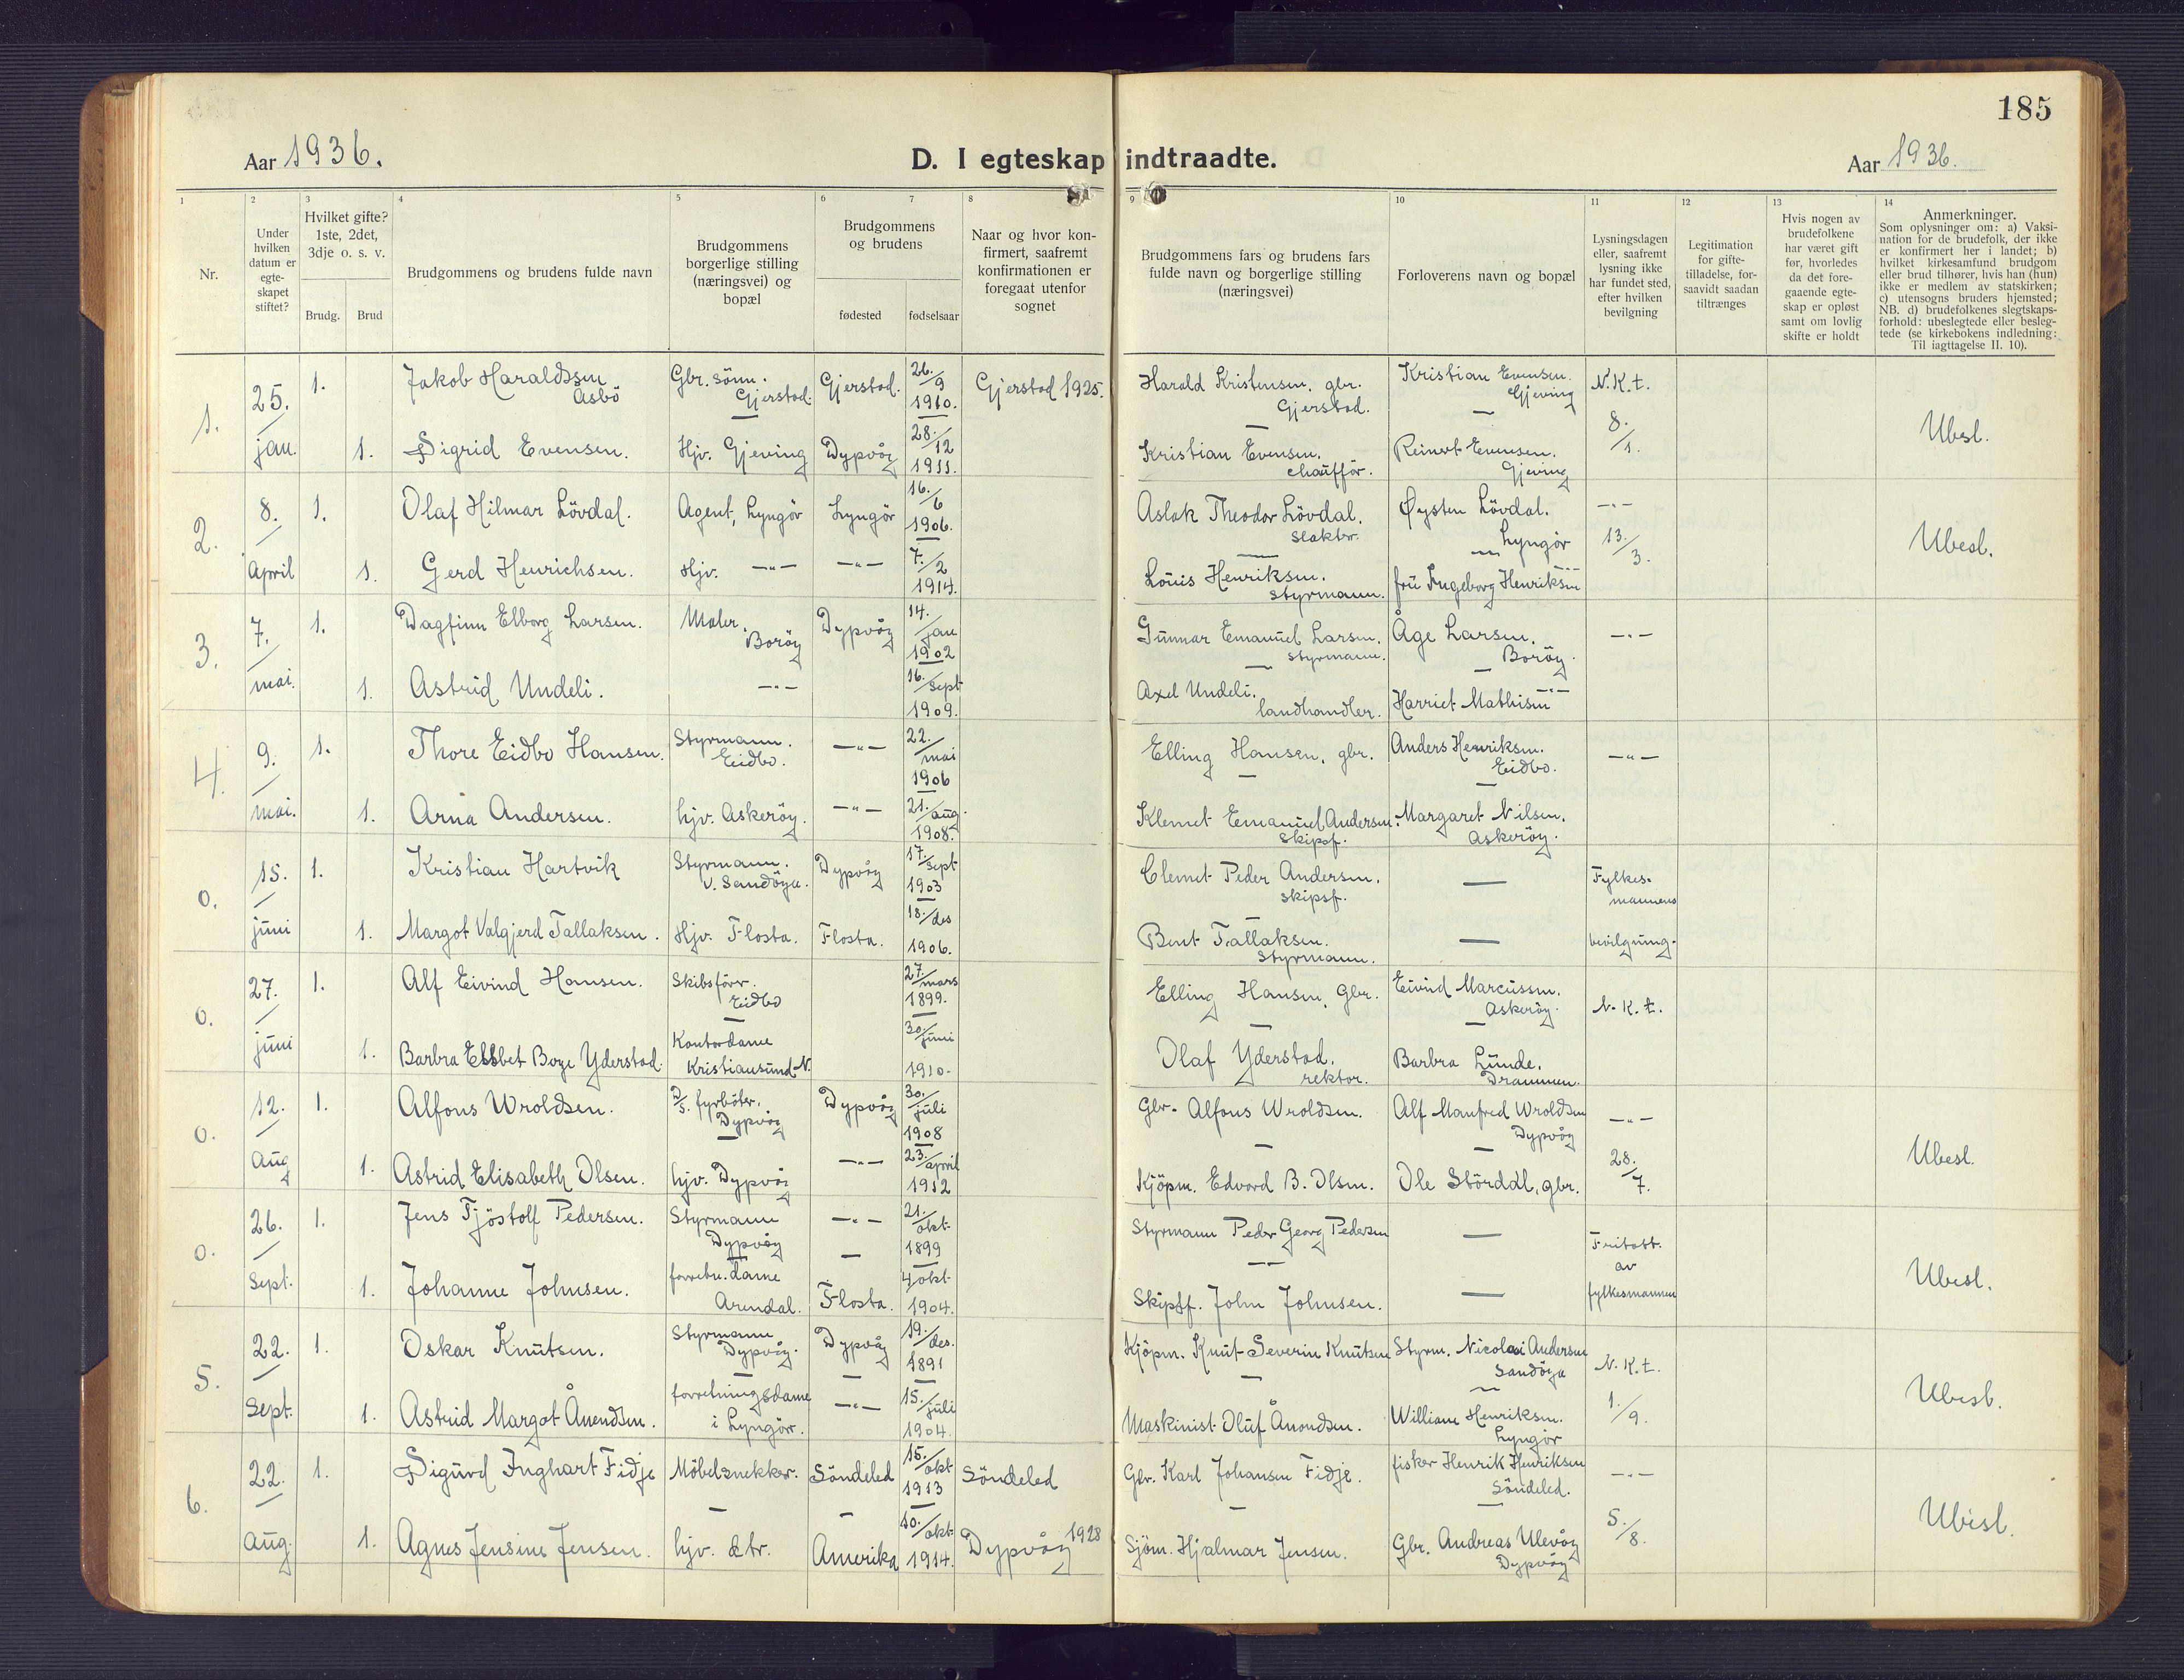 185
Aar 1936.
D. I egteskap indtraadte.
Aar 1936.
1 2 3 4 5 6 7 8 9 10 11 12 13 14
Nr.
Under hvilken datum er egte-skapet stiftet?
Hvilket gifte? 1ste, 2det, 3dje o. s. v.
Brudg. Brud
Brudgommens og brudens fulde navn
Brudgommens borgerlige stilling (næringsvei) og bopæl
Brudgommens og brudens
fødested fødselsaar
Naar og hvor kon-firmert, saafremt konfirmationen er foregaat utenfor sognet
Brudgommens fars og brudens fars fulde navn og borgerlige stilling (næringsvei)
Forloverens navn og bopæl
Lysningsdagen eller, saafremt lysning ikke har fundet sted, efter hvilken bevilgning
Legitimation for gifte-tilladelse, for-saavidt saadan tiltrænges
Hvis nogen av brudefolkene har været gift før, hvorledes da det fore-gaaende egte-skap er opløst samt om lovlig skifte er holdt
Anmerkninger.
Som oplysninger om: a) Vaksi-nation for de brudefolk, der ikke er konfirmert her i landet; b) hvilket kirkesamfund brudgom eller brud tilhører, hvis han (hun) ikke er medlem av statskirken; c) utensogns bruders hjemsted; NB. d) brudefolkenes slegtskaps-forhold: ubeslegtede eller besleg-tede (se kirkebokens indledning: Til iagttagelse II. 10).
1. 25./jan. 1. Jakob Haraldsen Asbö Gbr. sönn. Gjerstad. Gjerstad. 26./9 1910. Gjerstad 1925. Harald Kristensen, gbr. Gjerstad. Kristian Evensen. Gjeving N.K.t. 8./1. Ubesl.
1. Sigrid Evensen. Hjv. Gjeving Dypvåg 28./12 1911. Kristian Evensen. chaufför. Reinert Evensen. Gjeving
2. 8./April 1. Olaf Hilmar Lövdal. Agent, Lyngör Lyngör 16./6 1906. Aslak Theodor Lövdal. slakter. Øysten Lövdal. Lyngör -"- 13./3. Ubesl.
1. Gerd Henrichsen. Hjv. -"- -"- 7./2 1914. Louis Henriksen. styrmann. fru Ingeborg Henriksen -"-
3. 7./mai. 1. Dagfinn Elborg Larsen. Maler. Boröy Dypvåg 14./jan 1902 Gunnar Emanuel Larsen. styrmann. Åge Larsen. Boröy. -"-
1. Astrid Undeli. -"- 16./sept 1909. Axel Undeli. landhandler. Harriet Mathisen -"-
4. 9./mai. 1. Thore Eidbo Hansen. Styrmann. Eidbo. -"- 22./mai 1906 Elling Hansen, gbr. Anders Henriksen. Eidbo. -"-
1. Arna Andersen. hjv. Askeröy. -"- 21./aug. 1908. Klemet Emanuel Andersen. skipsf. Margaret Nilsen. Askeröy.
0. 15./juni 1. Kristian Hartvik Styrmann. V. Sandöya. Dypvåg 17./sept 1903 Clemet Peder Andersen. skipsf. — Fylkes-mannens
1. Margot Valgjerd Tallaksen. Hjv. Flosta. Flosta. 18./des 1906. Bent Tallaksen. styrmann. — bevilgning.
0. 27./juni 1. Alf Eivind Hansen. Skibsförer. Eidbo 27./mars 1899. Elling Hansen, Gbr. Eivind Marcussen. Askeröy. N.K.t.
1. Barbra Elsbet Boye Yderstad. Kontordame Kristiansund N. 30./juni 1910. Olaf Yderstad. rektor. Barbra Lunde. Drammen.
0. 12./Aug 1. Alfons Wroldsen. D/s. fyrböter. Dypvåg Dypvåg 30./juli 1908 Gbr. Alfons Wroldsen. Alf Manfred Wroldsen Dypvåg -"- 28./7. Ubesl.
1. Astrid Elisabeth Olsen. hjv. Dypvåg -"- 23./april 1912 Kjöpm. Edvard B. Olsen. Ole Stördal, gbr.
0. 26./Sept. 1. Jens Tjöstolf Pedersen. Styrmann Dypvåg -"- 21./okt. 1899 Styrmann Peder Georg Pedersen — Fritatt. av Ubesl.
1. Johanne Johnsen. forretn. dame Arendal. Flosta. 4/okt. 1904. Skipsf. John Johnsen. — fylkesmannen
5. 22./Sept. 1. Oskar Knutsen. Styrmann Dypvåg. Dypvåg 19./des. 1891 Kjöpm. Knut Severin Knutsen Styrm. Nicolai Andersen Sandöya N.K.t. 1./9. Ubesl.
1. Astrid Margot Ånendsen. forretningsdame i Lyngör. -"- 15./juli 1904. Maskinist Oluf Ånondsen. William Henriksen. Lyngör
6. 22./Aug. 1. Sigurd Inghart Fidje Möbelsnekker. Söndeled 15./okt 1913 Söndeled Gbr. Karl Johansen Fidje. fisker Henrik Henriksen Söndeled. -"- 5./8. Ubesl.
1. Agnes Jensine Jensen. hjv. dtr. Amerika 10./okt 1914. Dypvåg 1928 Sjöm. Hjalmar Jensen. Gbr. Andreas Ulevåg Dypvåg